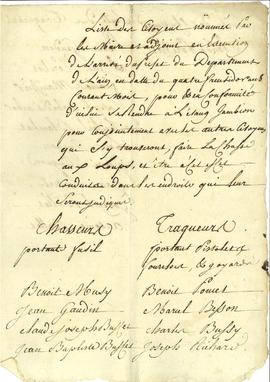 Liste des Citoyens nommés par
le Maire et adjoint en execution
de l'arrêté du Prefet du Departement
de l'ain en datte du quatre fructidor an 8
Courant mois, pour en Conformité
d'icelui se Rendre a L'Etang Gambion
pour Conjointement avec les autres Citoyens
qui s'y trouveront, faire La Chasse
aux Loups, et être
Conduits dans les endroits que leur
seront indiqué.
Chasseurs
portant fusil
Benoit Mussy
Jean Gaudin
Claude Joseph Buffet
Jean Baptiste Buffet
Traqueurs
portant Pistolet
fourches, & goyards
Benoit Poncet
Marul Besson
Charles Bussy
Joseph Richard